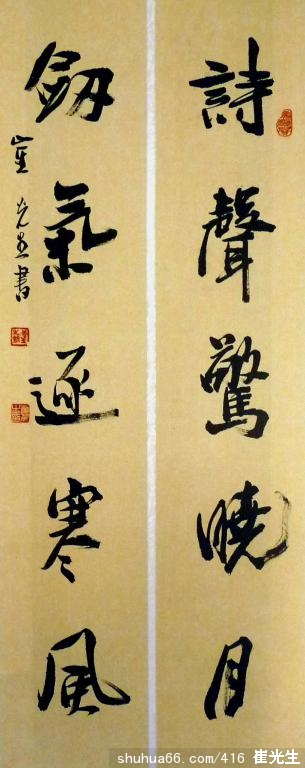 詩聲驚曉月
劔氣逐寒風
崔光生書
shuhua66.com/416 崔光生